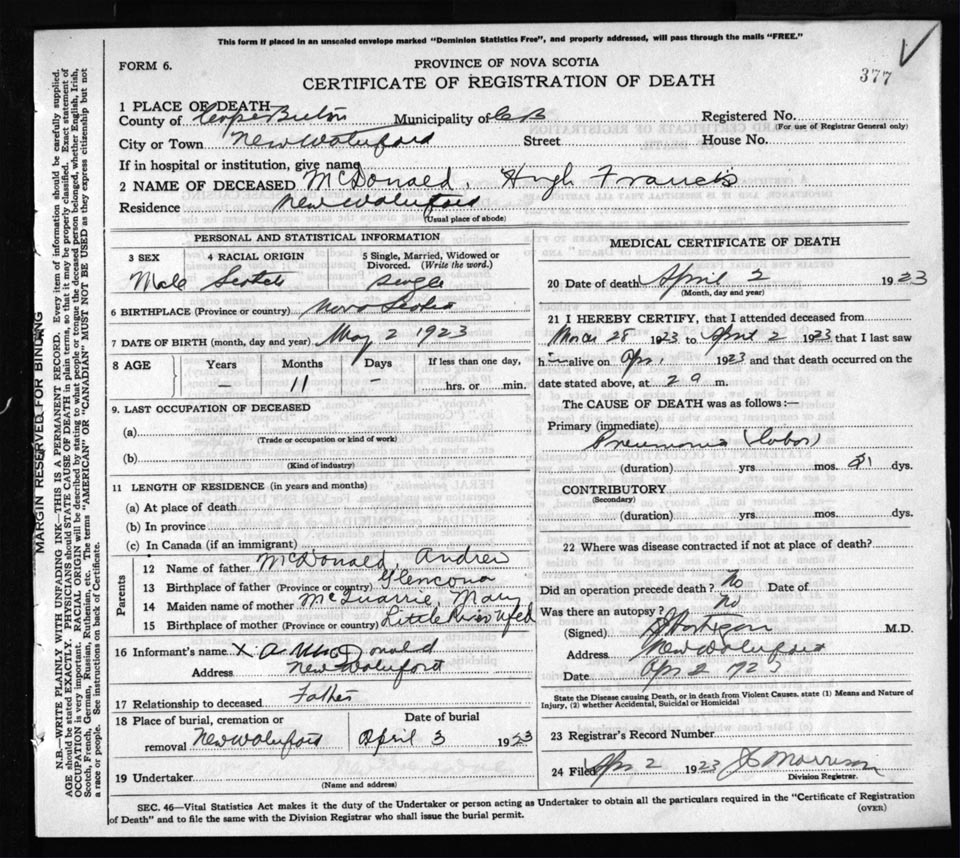 This form if placed in an unsealed envelope marked "Dominion Statistics Free", and properly addressed, will pass through the mails "FREE."
FORM 6.
PROVINCE OF NOVA SCOTIA
377
CERTIFICATE OF REGISTRATION OF DEATH
1 PLACE OF DEATH
County of Cape Breton Municipality of C B Registered No.
(For use of Registrar General only)
City or Town New Waterford Street House No.
If in hospital or institution, give name
2 NAME OF DECEASED McDonald, Hugh Francis
Residence New Waterford
(Usual place of abode)
PERSONAL AND STATISTICAL INFORMATION
3 SEX 4 RACIAL ORIGIN 5 Single, Married, Widowed or Divorced. (Write the word.)
Male Scotch Single
6 BIRTHPLACE (Province or country) Nova Scotia
7 DATE OF BIRTH (month, day and year) May 2 1923
8 AGE Years Months Days If less than one day,
– 11 – hrs. or min.
9. LAST OCCUPATION OF DECEASED
(a)
(Trade or occupation or kind of work)
(b)
(Kind of industry)
11 LENGTH OF RESIDENCE (in years and months)
(a) At place of death
(b) In province
(c) In Canada (if an immigrant)
Parents
12 Name of father McDonald, Andrew
13 Birthplace of father (Province or country)
14 Maiden name of mother McQuarrie Mary
15 Birthplace of mother (Province or country) Little
16 Informant's name X A McDonald
Address New Waterford
17 Relationship to deceased Father
18 Place of burial, cremation or removal New Waterford
Date of burial April 3 1923
19 Undertaker
(Name and address)
MEDICAL CERTIFICATE OF DEATH
20 Date of death April 2 1923
(Month, day and year)
21 I HEREBY CERTIFY, that I attended deceased from
March 28 1923 to April 2 1923 that I last saw
h alive on Apr 1 1923 and that death occurred on the
date stated above, at 2 a m.
The CAUSE OF DEATH was as follows:—
Primary (immediate)
Pneumonia (lobar)
(duration) yrs. mos. dys.
CONTRIBUTORY
(Secondary)
(duration) yrs. mos. dys.
22 Where was disease contracted if not at place of death?
Did an operation precede death? No Date of
Was there an autopsy? No
(Signed) M.D.
Address New Waterford
Date Apr 2 1923
State the Disease causing Death, or in death from Violent Causes, state (1) Means and Nature of Injury, (2) whether Accidental, Suicidal or Homicidal
23 Registrar's Record Number
24 Filed Apr 2 1923 Morrison
Division Registrar.
SEC. 46—Vital Statistics Act makes it the duty of the Undertaker or person acting as Undertaker to obtain all the particulars required in the "Certificate of Registration
of Death" and to file the same with the Division Registrar who shall issue the burial permit.
(OVER)
MARGIN RESERVED FOR BINDING
N.B.—WRITE PLAINLY WITH UNFADING INK—THIS IS A PERMANENT RECORD. Every item of information should be carefully supplied.
AGE should be stated EXACTLY. PHYSICIANS should STATE CAUSE OF DEATH in plain terms, so that it may be properly classified. Exact statement of
OCCUPATION is very important. RACIAL ORIGIN will be described by stating to what people or tongue the deceased person belonged, whether English, Irish,
Scotch, French, German, Russian, Ruthenian, etc. The terms "AMERICAN" OR "CANADIAN" MUST NOT BE USED as they express citizenship but not
a race or people. See instructions on back of Certificate.